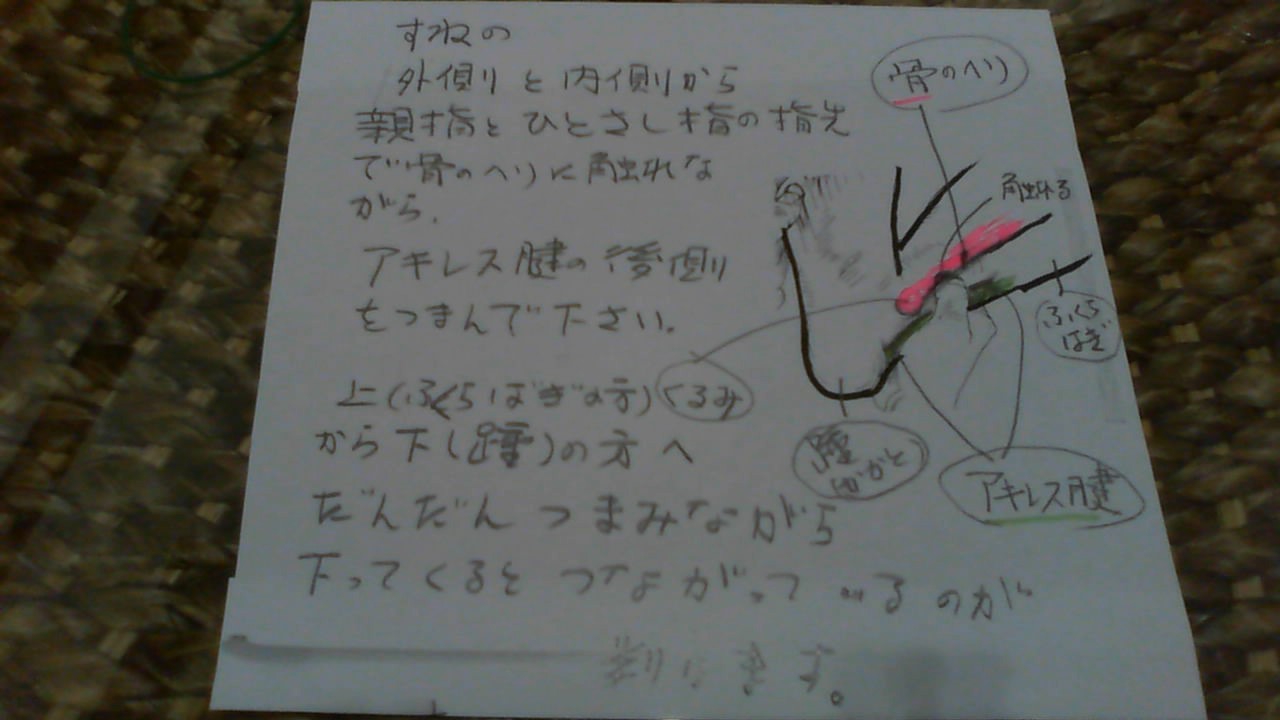 すねの
外側と内側から
親指とひとさし指の指先
で骨のヘリに触れな
がら、
アキレス腱の後側
をつまんで下さい。
上(ふくらはぎの方)
から下(踵)の方へ
だんだんつまみながら
下ってくるとつながっているのが
判ります。
骨のヘリ
触れる
ふくらはぎ
くるみ
踵
かかと
アキレス腱